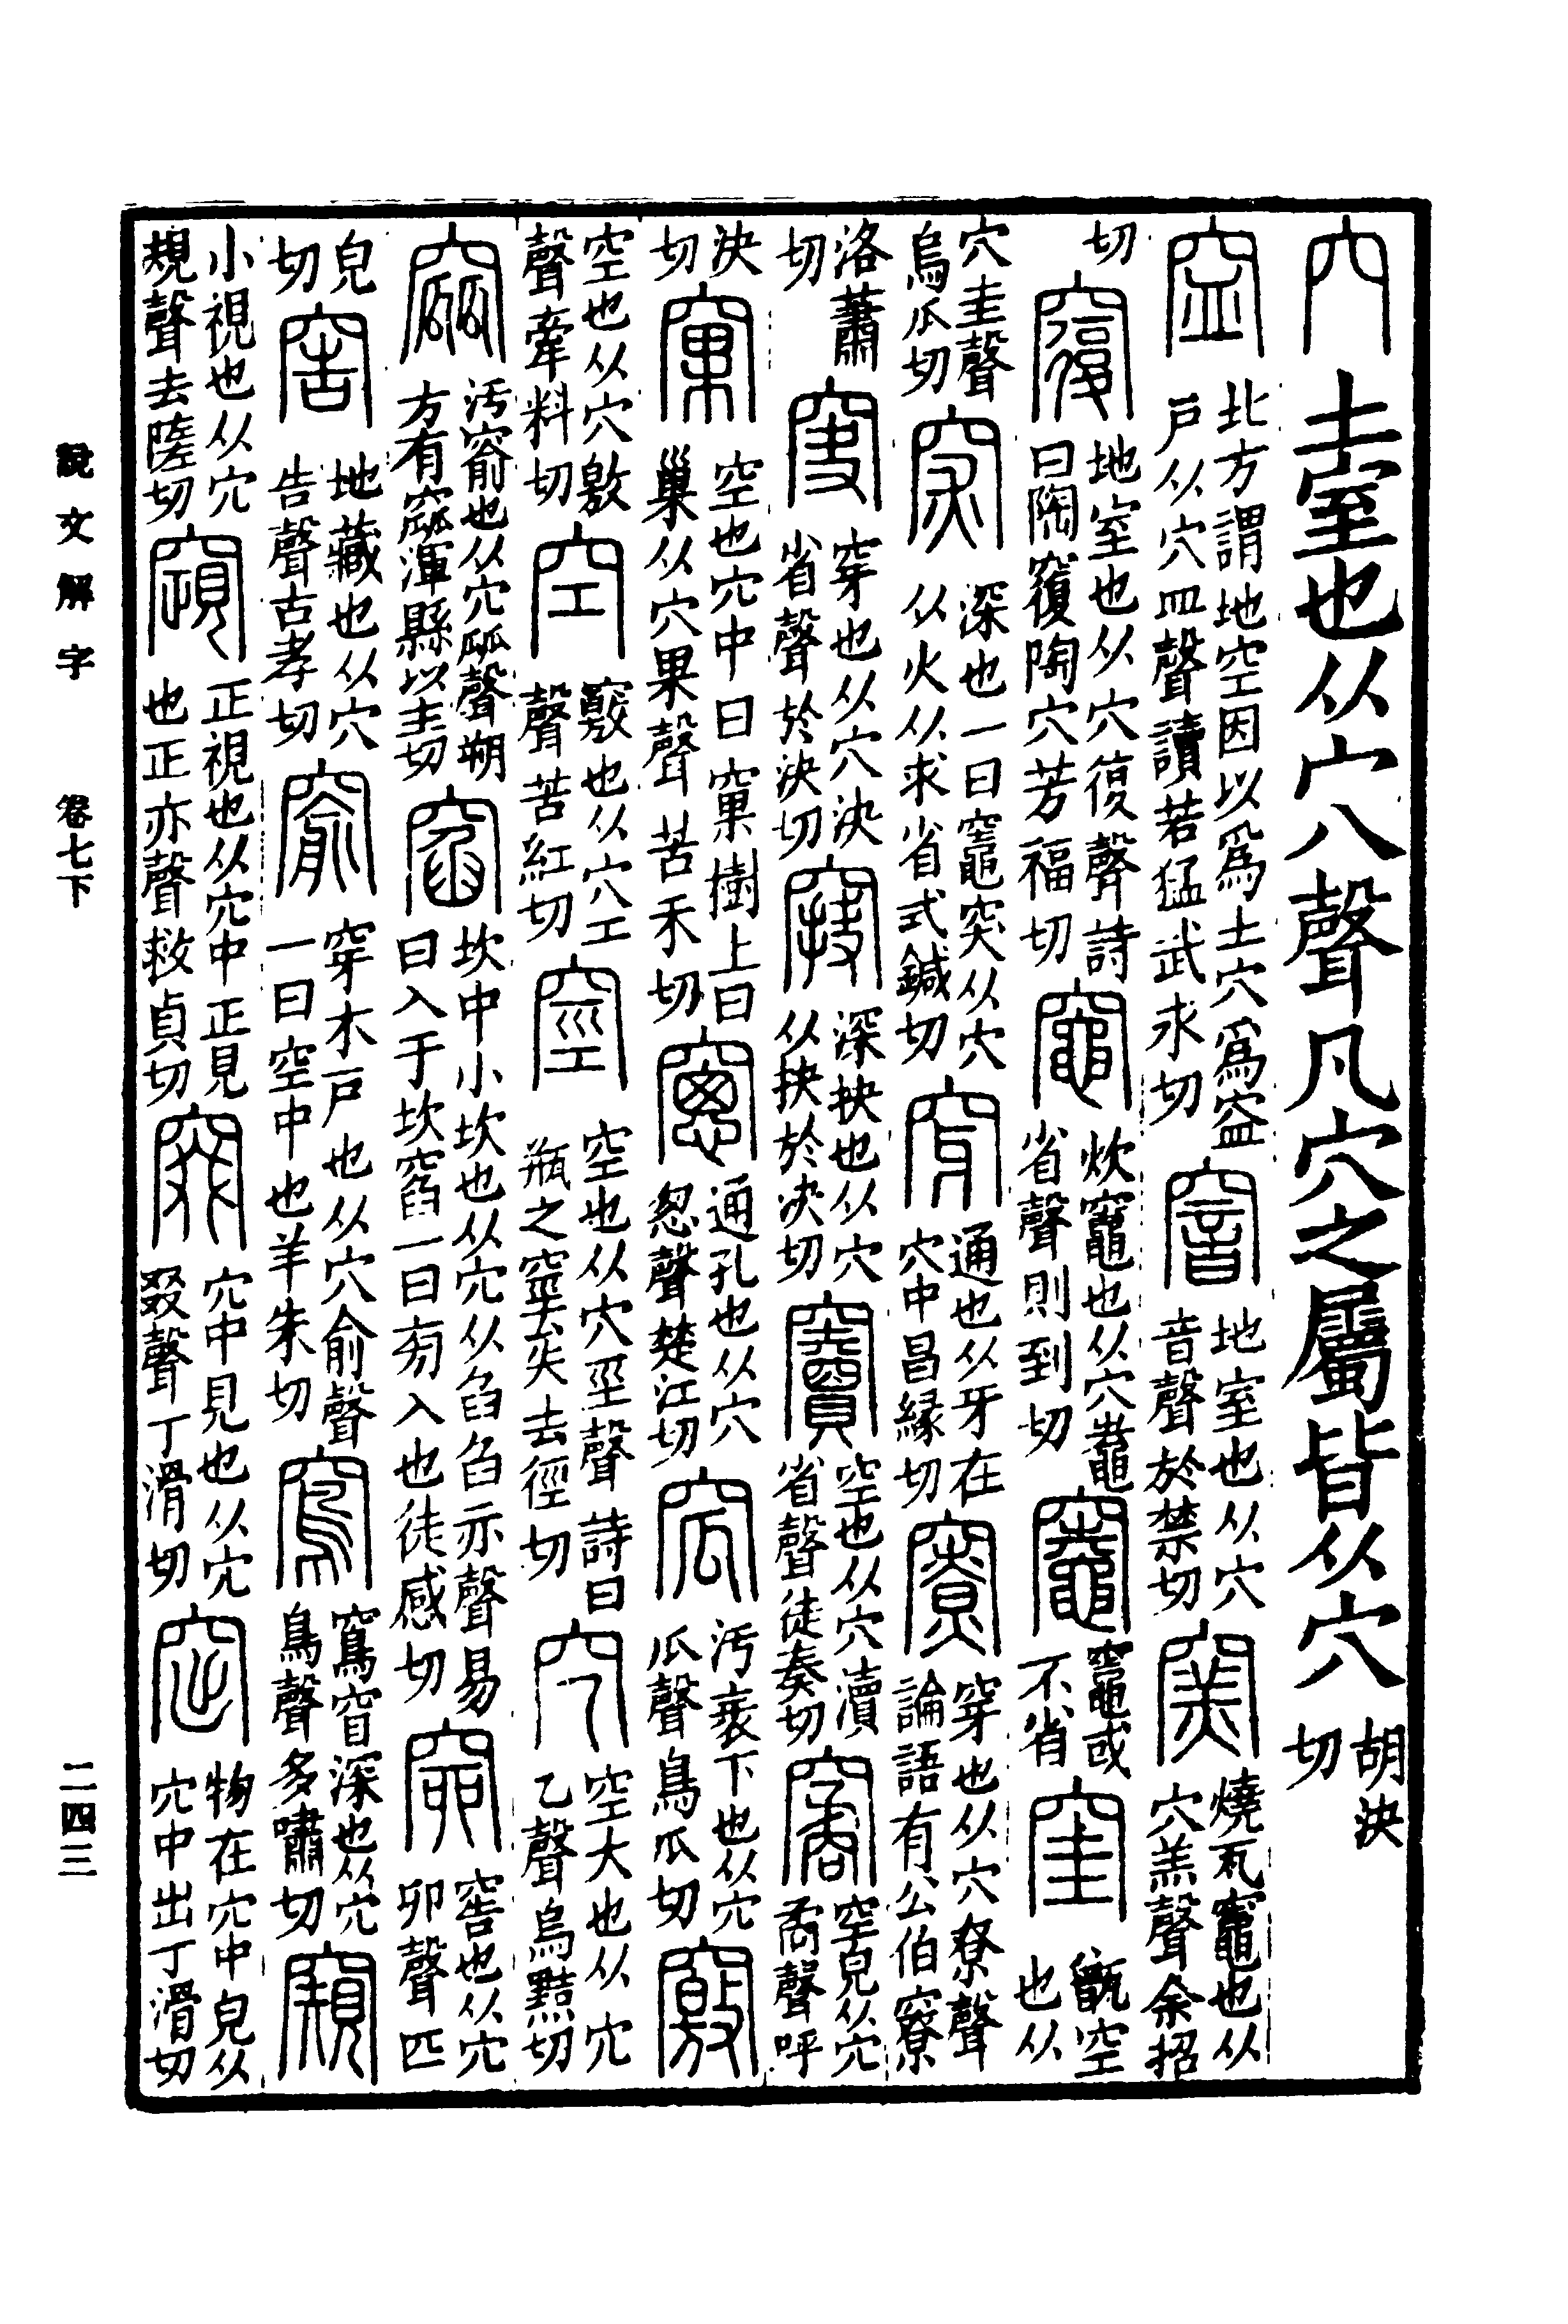 穴 土室也从宀八聲凡穴之屬皆从穴 胡決切
𥦋 北方謂地空因以爲土穴爲𥦋戶从穴皿聲讀若猛武永切 窨 地室也从穴音聲於禁切 窯 燒瓦竈也从穴羔聲余招
切 𥨍 地室也从穴復聲詩曰陶𥨍陶穴芳福切 竈 炊竈也从穴鼀省聲則到切 竈 竈或不省 窐 甑空也从
穴圭聲烏瓜切 突 深也一曰竈突从穴从火从求省式鍼切 穿 通也从牙在穴中昌緣切 竂 穿也从穴尞聲論語有公伯竂
洛蕭切 穿也从穴決省聲於決切 深抉也从穴从抉於決切 竇 空也从穴瀆省聲徒奏切 空皃从穴矞聲呼
決切 窠 空也穴中曰窠樹上曰巢从穴果聲苦禾切 窻 通孔也从穴悤聲楚江切 窊 污衺下也从穴瓜聲烏瓜切 竅
空也从穴敫聲牽料切 空 竅也从穴工聲苦紅切 空也从穴巠聲詩曰瓶之窒矣去徑切 穵 空大也从穴乙聲烏黠切
窳 污窬也从穴㼌聲朔方有窳渾縣以主切 窞 坎中小坎也从穴从臽臽亦聲易曰入于坎窞一曰旁入也徒感切 窌 窖也从穴卯聲匹
皃切 窖 地藏也从穴告聲古孝切 窬 穿木戶也从穴俞聲一曰空中也羊朱切 窵 窵窅深也从穴鳥聲多嘯切 窺
小視也从穴規聲去隓切 竀 正視也从穴中正見也正亦聲敕貞切 窡 穴中見也从穴叕聲丁滑切 窋 物在穴中皃从穴中出丁滑切
說文解字 卷七下 二四三